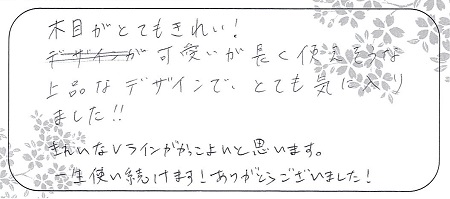 木目がとてもきれい!
デザインが可愛いが長く使えそうな
上品なデザインで、とても気に入り
ました!!
きれいなVラインがかっこよいと思います。
一生使い続けます!ありがとうございました!